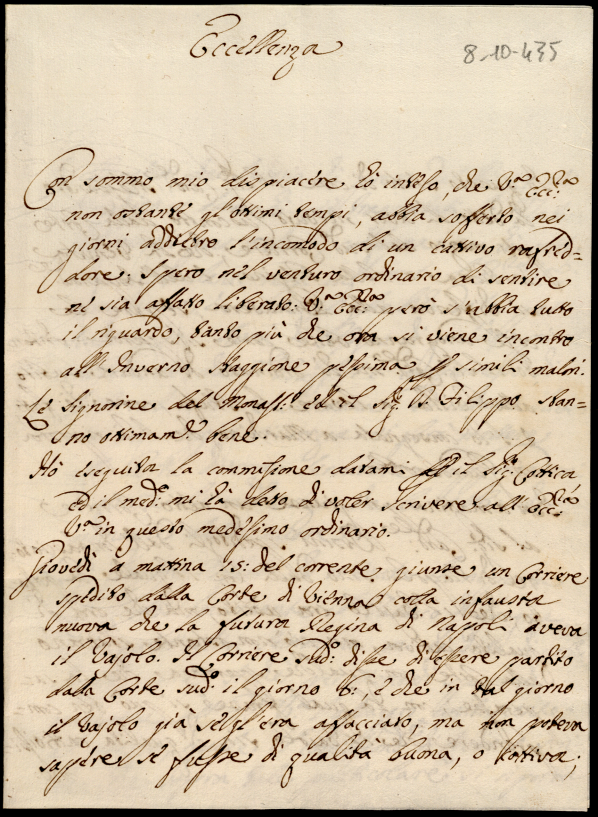 Eccellenza
8-10-435
Con sommo mio dispiacere hò inteso, che V.ª Ecc.ª
non ostante gl'ottimi tempi, abbia sofferto nei
giorni addietro l'incomodo di un cattivo rafred=
dore: Spero nel venturo ordinario di sentire
ne sia affatto liberato: V.ª Ecc.ª però s'abbia tutto
il riguardo, tanto più che ora si viene incontro
all'Inverno Staggione pessima p simili malori.
Le Signorine del Monast.: ed il Sig.r D. Filippo stan=
no ottimam.e bene.
Hò eseguita la commissione datami p il Sig.r Cottica
ed il med.o mi hà detto di voler scrivere all'Ecc.za
V.ª in questo medesimo ordinario.
Giovedì a mattina 15: del corrente giunse un Corriere
spedito dalla Corte di Vienna colla infausta
nuova che la futura Regina di Napoli aveva
il Vajolo. Il Corriere sud.o disse di essere partito
dalla Corte sud.a il giorno 6:, e che in tal giorno
il Vajolo già se gl'era affacciato, ma non poteva
sapere se fusse di qualita buona, o cattiva;